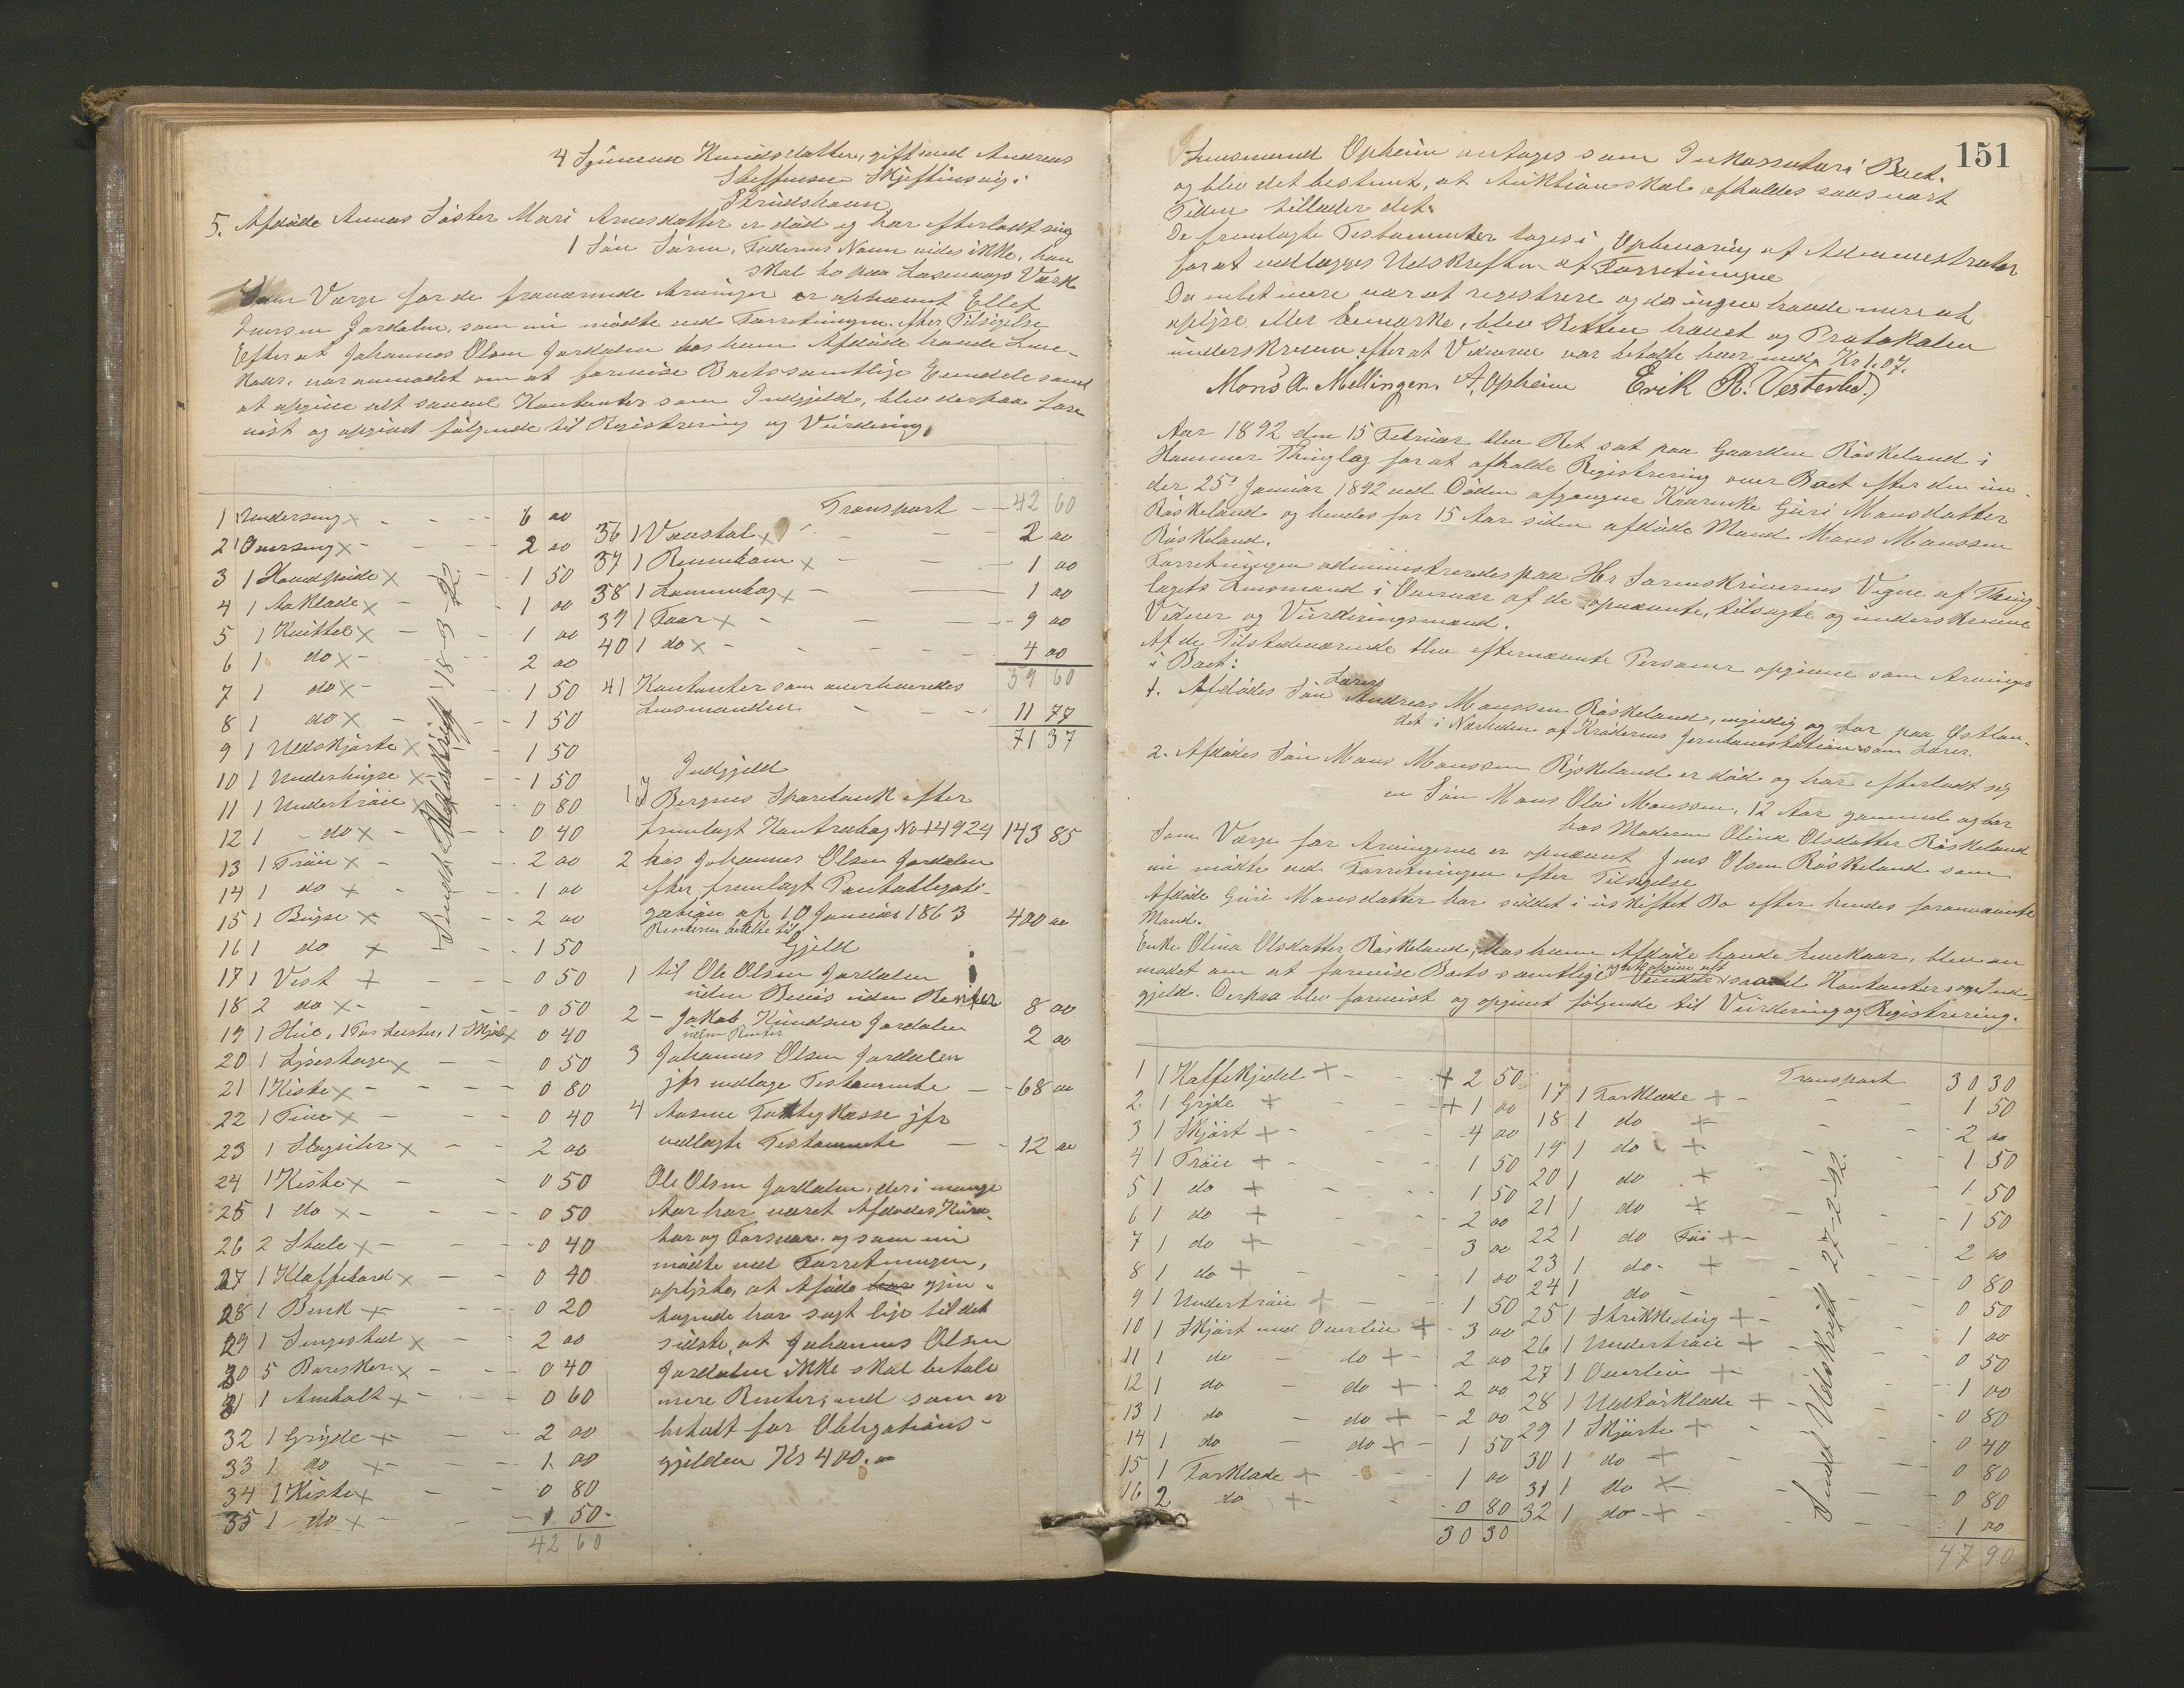 4 Knudsdatter, gift med Andreas
Steffensen Skjeftensvig i
Strudshavn
5. Afdøde Annas Søster Mari Arnesdatter er død og har efterladt sig
1 Søn Søren, Faderens Navn vides ikke, han
skal bo paa Værk
Som Værge for de fraværende Arvinger er opnævnt Ellef
Iversen Jordalen, som nu mødte ved Forretningen efter Tilsigelse
Efter at Johannes Olsen Jordalen hos hvem Afdøde havde Leve-
kaar, var anmodet om at forevise Boets samtlige Eiendele samt
at opgive alt saavel Kontanter som Indgjeld, blev derpaa fore
vist og opgivet følgende til Registrering og Vurdering.
1 1 Underseng x - - - 6 00
2 1 Overseng x - - - 2 00
3 1 Hovedpude x - - 1 50
4 1 Aaklæde x - - 1 00
5 1 Kvittel x - - 1 00
6 1 do x - - 2 00
7 1 do x - - 1 50
8 1 do x - - 1 50
9 1 Uldskjorte x 1 50
10 1 Underbugse x - - 1 50
11 1 Undertrøie x - 0 80
12 1 - do x - - 0 40
13 1 Trøie x - - 2 00
14 1 do x - - 1 00
15 1 Bugse x - - 2 00
16 1 do x - 1 50
17 1 Vest x - - 0 50
18 2 do x - - 0 50
19 1 Hue, 1 1 x 0 40
20 1 Lysestage x - 0 50
21 1 Kiste x - - - 0 80
22 1 Tine x - - 0 40
23 1 x - - 2 00
24 1 Kiste x - - 0 50
25 1 do x - - 0 50
26 2 Stole x - - - 0 40
27 1 Klaffebord x - - 0 40
28 1 Benk x - - 0 20
29 1 Sengested x - - 2 00
30 5 x - - 0 40
31 1 Ambolt x - - 0 60
32 1 Gryde x - - 2 00
33 1 do x - - 1 00
34 1 Kiste x - - 0 80
35 1 do x - - 1 50
42 60
Sendt Udskrift 18-3-92.
Transport - - 42 60
36 1 x - - 2 00
37 1 x - - 1 00
38 1 x - - 1 00
39 1 Faar x - - 9 00
40 1 do x - - - 4 00
59 60
41 Kontanter som overleveredes
Lensmanden - - 11 77
71 37
Indgjeld
1 i Bergens Sparebank efter
fremlagt Kontrabog No 14924 143 85
2 hos Johannes Olsen Jordalen
efter fremlagt Pantobligati-
gation af 10 Januar 1863 400 00
Renterne betalte til
Gjeld
1 til Ole Olsen Jordalen
uden Bevis uden Renter 8 00
2 - Jakob Knudsen Jordalen
uden Renter 2 00
3 Johannes Olsen Jordalen
jfr vedlage Testamente - - 68 00
4 Aasane Fattigkasse jfr
vedlagte Testamente - - 12 00
Ole Olsen Jordalen, der i mange
Aar har været Afdødes Kura-
tor og Forsvar, og som nu
mødte ved Forretningen,
oplyste, at Afdøde har gjen-
tagende har sagt lige til det
sidste, at Johannes Olsen
Jordalen ikke skal betale
mere Renter, end som er
betalt for Obligations-
gjelden Kr 400.00
151
Lensmand Opheim antages som Inkassator i Boet.
og blev det bestemt, at Auktion skal afholdes saasnart
Tiden tillader det.
De fremlagte Testamenter toges i Opbevaring af Administrator
for at vedlægges Udskriften af Forretningen
Da intet mere var at registrere og da ingen havde mere at
oplyse eller bemærke, blev Retten hævet og Protokolen
underskreven, efter at Vidnerne var betalte hver med Kr 1.07.
Mons A. Mellingen. A. Opheim Erik R. Vesterlid.
Aar 1892 den 15 Februar blev Ret sat paa Gaarden Røskeland i
Hammer Thinglag for at afholde Registrering over Boet efter den un-
der 25 Januar 1892 ved Døden afgangne Kaarenke Guri Monsdatter
Røskeland og hendes for 15 Aar siden afdøde Mand Mons Monssen
Røskeland.
Forretningen administreredes paa Hr Sorenskriverens Vegne af Thing-
lagets Lensmand i Overvær af de opnævnte, tilsagte og underskrevne
Vidner og Vurderingsmænd.
Af de Tilstedeværende blev efternævnte Personer opgivne som Arvinger
i Boet:
1. Afdødes Søn Lærer Andreas Monssen Røskeland, myndig og bor paa Østlan-
det i Nærheden af Krøderens Jernbanestation som Lærer.
2. Afdødes Søn Mons Monssen Røskeland er død og har efterladt sig
en Søn Mons Olai Monssen, 12 Aar gammel og bor
hos Moderen Olina Olsdatter Røskeland
Som Værge for Arvingerne er opnævnt Jens Olsen Røskeland som
nu mødte ved Forretningen efter Tilsigelse
Afdøde Guri Monsdatter har siddet i uskiftet Bo efter hendes forannævnte
Mand.
Enke Olina Olsdatter Røskeland, hos hvem Afdøde havde Levekaar, blev an
modet om at forevise Boets samtlige Eiendele og at opgive alt saavel Kontanter som Ind-
gjeld. Derpaa blev forevist og opgivet følgende til Vurdering og Registrering.
1 1 Kaffekjedel + - - + 2 50
2 1 Gryde + - + 1 00
3 1 Skjørt + - - 4 00
4 1 Trøie + - - 1 50
5 1 do + - - 1 50
6 1 do + - - 2 00
7 1 do + - - 3 00
8 1 do + - - 1 00
9 1 Undertrøie + - - 1 50
10 1 Skjørt med Overliv + - 3 00
11 1 do - do + - 2 00
12 1 do - do + - 2 00
13 1 do - do + - 2 00
14 1 do - do + - 1 50
15 1 Forklæde + - - 1 00
16 2 do + - - 0 80
30 30
Transport 30 30
17 1 Forklæde + - - 1 50
18 1 do + - 2 00
19 1 do + - 1 50
20 1 do + - 1 50
21 1 do + - 1 50
22 1 do + - 2 00
23 1 do - + - 0 80
24 1 do - - 0 50
25 1 + - 1 00
26 1 Undertrøie + - 0 50
27 1 Overliv + - 1 00
28 1 + - 0 80
29 1 Skjørte + - 0 40
30 1 do + - 0 80
31 1 do + - 0 80
32 1 do - + - 1 00
47 90
Sendt Udskrift 27-2-92.